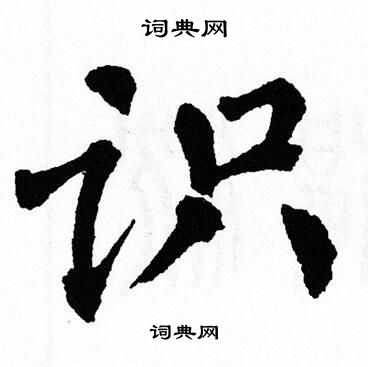 词典网
识
词典网